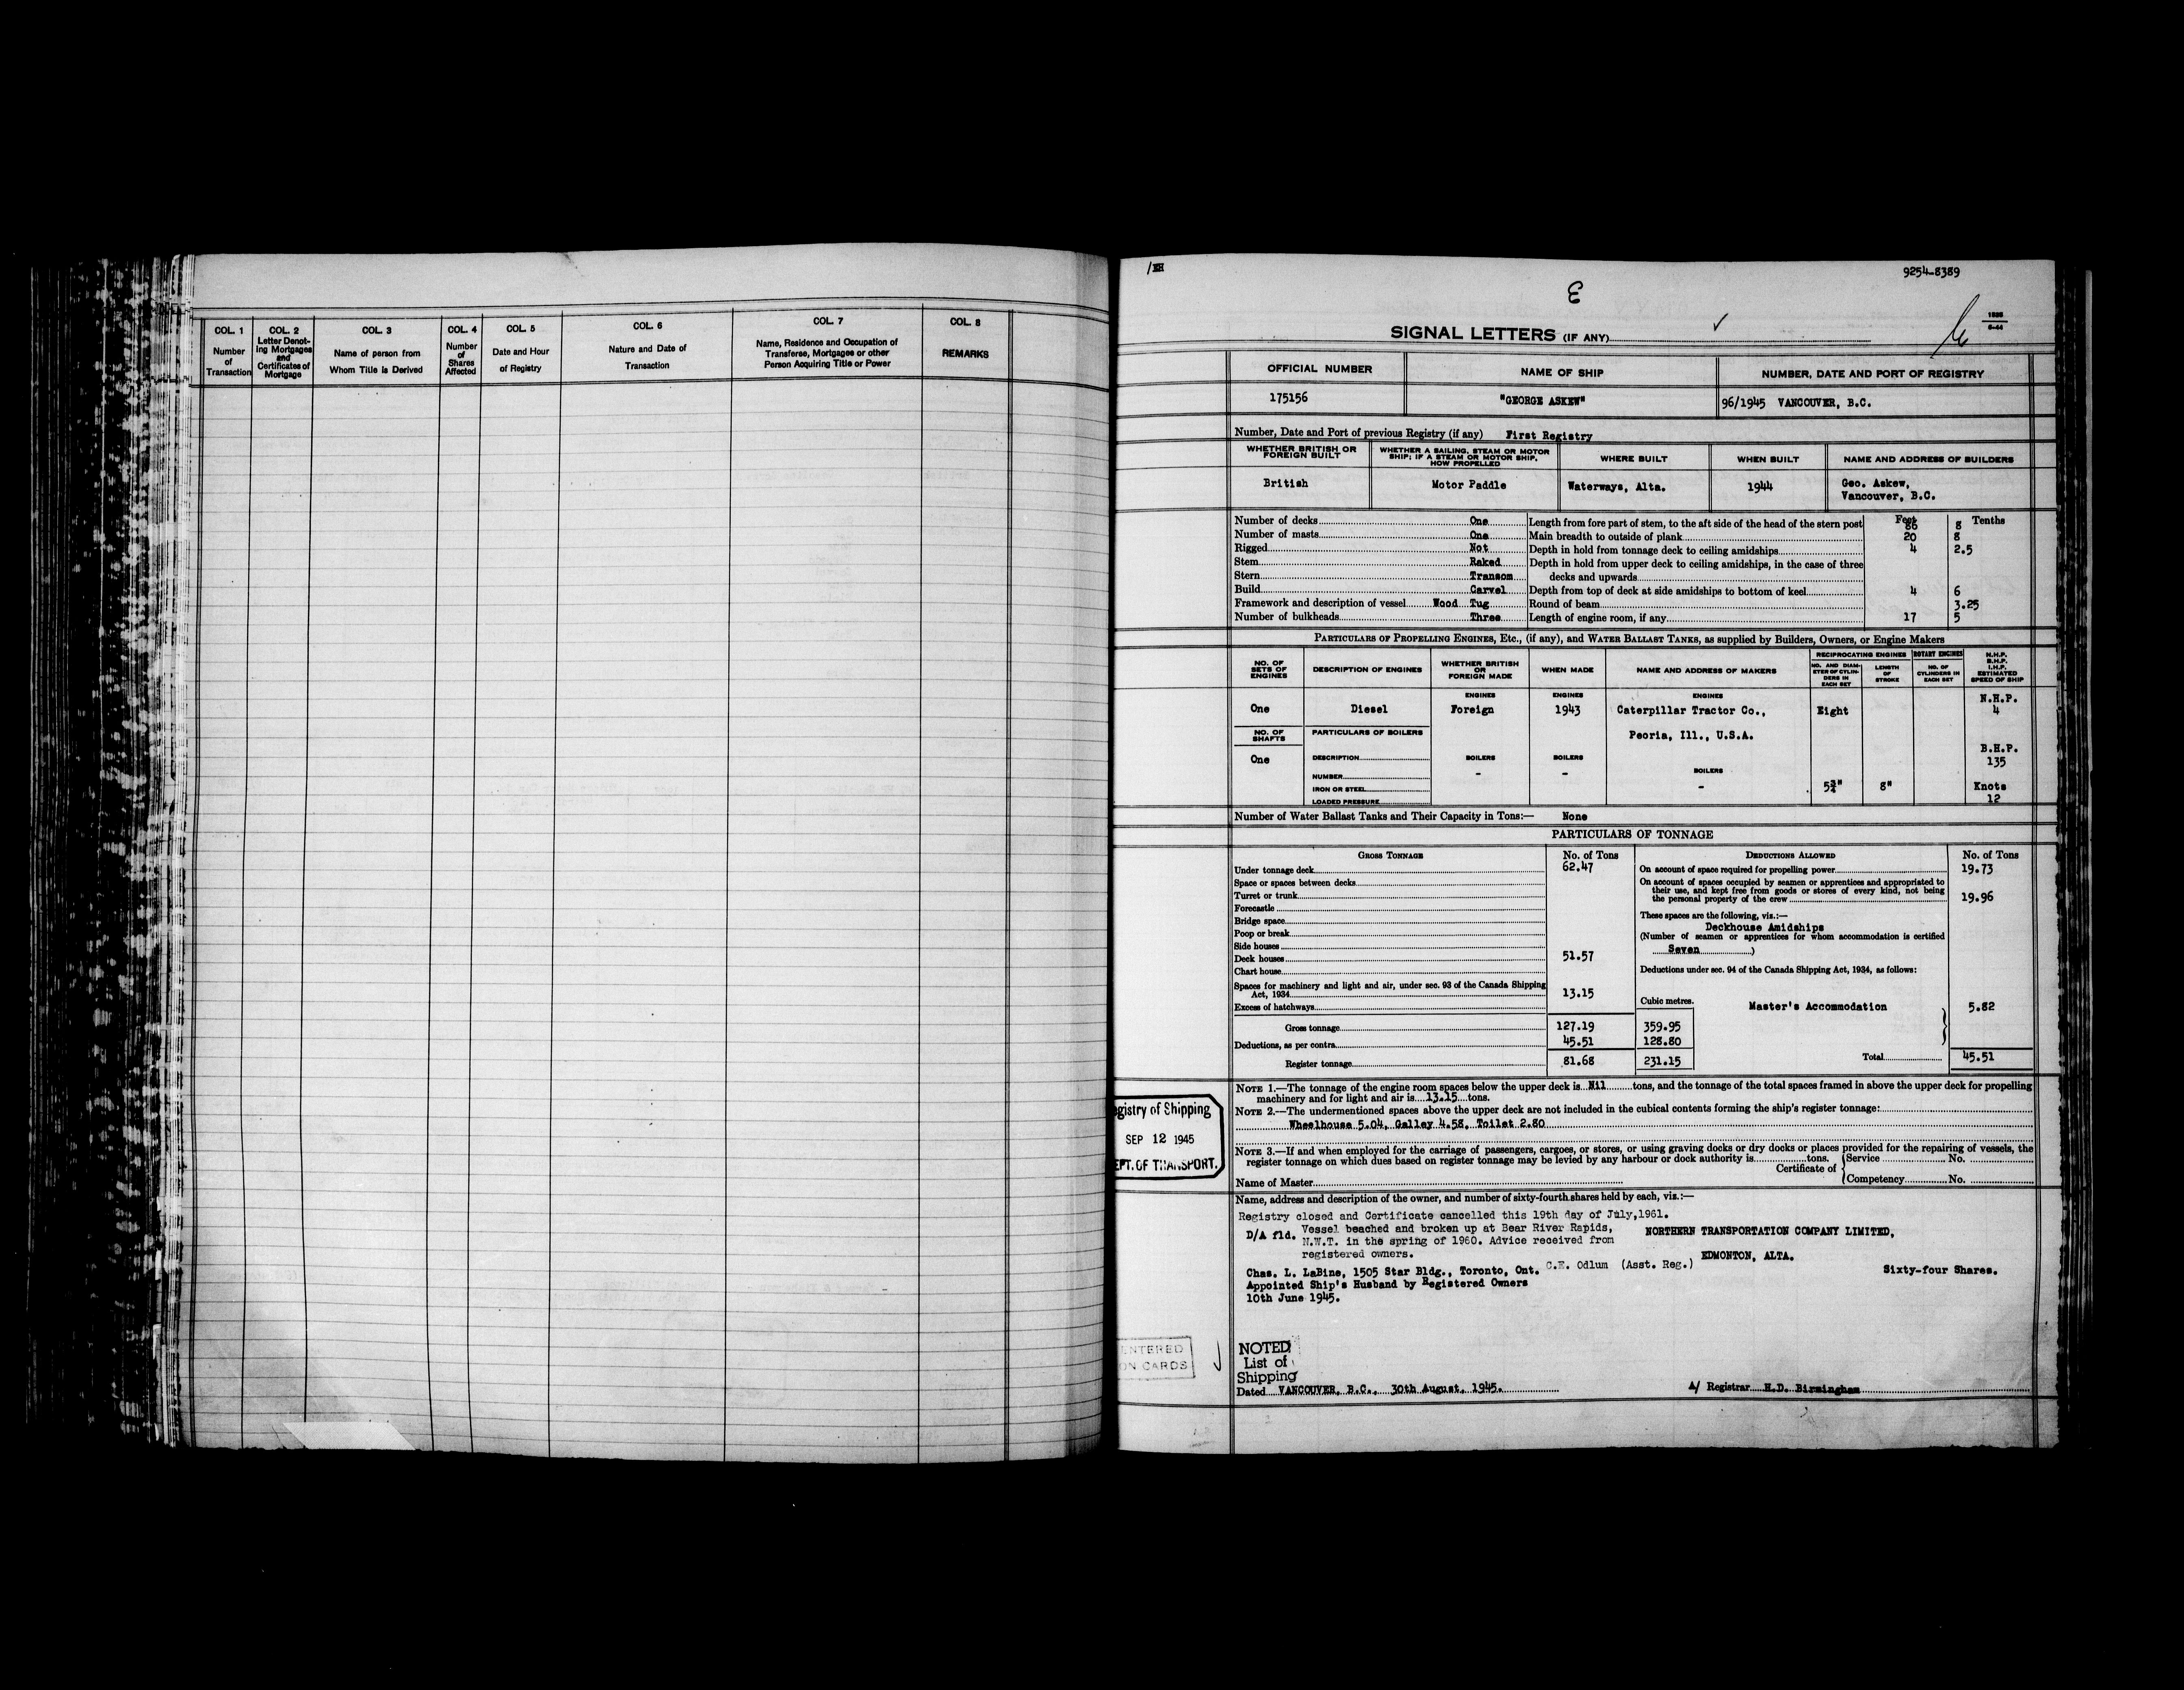 COL. 1
Number
of
Transaction
COL. 2
Letter Denot-
ing Mortgages
and
Certificates of
Mortgage
COL. 3
Name of person from
Whom Title is Derived
COL. 4
Number
of
Shares
Affected
COL. 5
Date and Hour
of Registry
COL. 6
Nature and Date of
Transaction
COL. 7
Name, Residence and Occupation of
Transferee, Mortgagee or other
Person Acquiring Title or Power
COL. 8
REMARKS
/EH
9254-8389
E
SIGNAL LETTERS (IF ANY)
OFFICIAL NUMBER NAME OF SHIP NUMBER, DATE AND PORT OF REGISTRY
175156 "GEORGE ASKEW" 96/1945 VANCOUVER, B.C.
Number, Date and Port of previous Registry (if any) First Registry
WHETHER BRITISH OR
FOREIGN BUILT
WHETHER A SAILING, STEAM OR MOTOR
SHIP; IF A STEAM OR MOTOR SHIP,
HOW PROPELLED
WHERE BUILT WHEN BUILT NAME AND ADDRESS OF BUILDERS
British Motor Paddle Waterways, Alta. 1944 Geo. Askew,
Vancouver, B.C.
Feet Tenths
Number of decks One Length from fore part of stem, to the aft side of the head of the stern post 86 8
Number of masts One Main breadth to outside of plank 20 8
Rigged Not Depth in hold from tonnage deck to ceiling amidships 4 2.5
Stem Raked Depth in hold from upper deck to ceiling amidships, in the case of three
Stern Transom decks and upwards
Build Carvel Depth from top of deck at side amidships to bottom of keel 4 6
Framework and description of vessel Wood Tug Round of beam 3.25
Number of bulkheads Three Length of engine room, if any 17 5
PARTICULARS OF PROPELLING ENGINES, ETC., (if any), and WATER BALLAST TANKS, as supplied by Builders, Owners, or Engine Makers
NO. OF
SETS OF
ENGINES
DESCRIPTION OF ENGINES
WHETHER BRITISH
OR
FOREIGN MADE
WHEN MADE
NAME AND ADDRESS OF MAKERS
RECIPROCATING ENGINES ROTARY ENGINES
NO. AND DIAM-
ETER OF CYLIN-
DERS IN
EACH SET
LENGTH
OF
STROKE
NO. OF
CYLINDERS IN
EACH SET
N.H.P.
B.H.P.
I.H.P.
ESTIMATED
SPEED OF SHIP
ENGINES ENGINES ENGINES
N.H.P.
One Diesel Foreign 1943 Caterpillar Tractor Co., Eight 4
NO. OF
SHAFTS
PARTICULARS OF BOILERS
Peoria, Ill., U.S.A.
B.H.P.
One 135
DESCRIPTION BOILERS BOILERS
NUMBER - - BOILERS
IRON OR STEEL - 5¾" 8" Knots
LOADED PRESSURE 12
Number of Water Ballast Tanks and Their Capacity in Tons:— None
PARTICULARS OF TONNAGE
GROSS TONNAGE No. of Tons DEDUCTIONS ALLOWED No. of Tons
Under tonnage deck 62.47 On account of space required for propelling power 19.73
Space or spaces between decks
Turret or trunk
Forecastle
Bridge space
Poop or break
Side houses
Deck houses 51.57
Chart house
Spaces for machinery and light and air, under sec. 93 of the Canada Shipping
Act, 1934 13.15
Excess of hatchways
Gross tonnage 127.19
Deductions, as per contra 45.51
Register tonnage 81.68
On account of spaces occupied by seamen or apprentices and appropriated to
their use, and kept free from goods or stores of every kind, not being
the personal property of the crew 19.96
These spaces are the following, viz.:—
Deckhouse Amidships
(Number of seamen or apprentices for whom accommodation is certified
Seven )
Deductions under sec. 94 of the Canada Shipping Act, 1934, as follows:
Cubic metres. Master's Accommodation 5.82
359.95
128.80
231.15
Total 45.51
NOTE 1.—The tonnage of the engine room spaces below the upper deck is Nil tons, and the tonnage of the total spaces framed in above the upper deck for propelling
machinery and for light and air is 13.15 tons.
NOTE 2.—The undermentioned spaces above the upper deck are not included in the cubical contents forming the ship's register tonnage:
Wheelhouse 5.04, Galley 4.58, Toilet 2.80
NOTE 3.—If and when employed for the carriage of passengers, cargoes, or stores, or using graving docks or dry docks or places provided for the repairing of vessels, the
register tonnage on which dues based on register tonnage may be levied by any harbour or dock authority is tons.
Certificate of { Service No.
Competency No.
Name of Master
gistry of Shipping
SEP 12 1945
EPT. OF TRANSPORT.
Name, address and description of the owner, and number of sixty-fourth shares held by each, viz.:—
Registry closed and Certificate cancelled this 19th day of July, 1961.
D/A fld. Vessel beached and broken up at Bear River Rapids,
N.W.T. in the spring of 1960. Advice received from
registered owners.
C.E. Odlum (Asst. Reg.)
NORTHERN TRANSPORTATION COMPANY LIMITED,
EDMONTON, ALTA.
Sixty-four Shares.
Chas. L. LaBine, 1505 Star Bldg., Toronto, Ont.
Appointed Ship's Husband by Registered Owners
10th June 1945.
ENTERED
ON CARDS
NOTED
List of
Shipping
Dated VANCOUVER, B.C., 30th August, 1945. A/ Registrar H.D. Birmingham